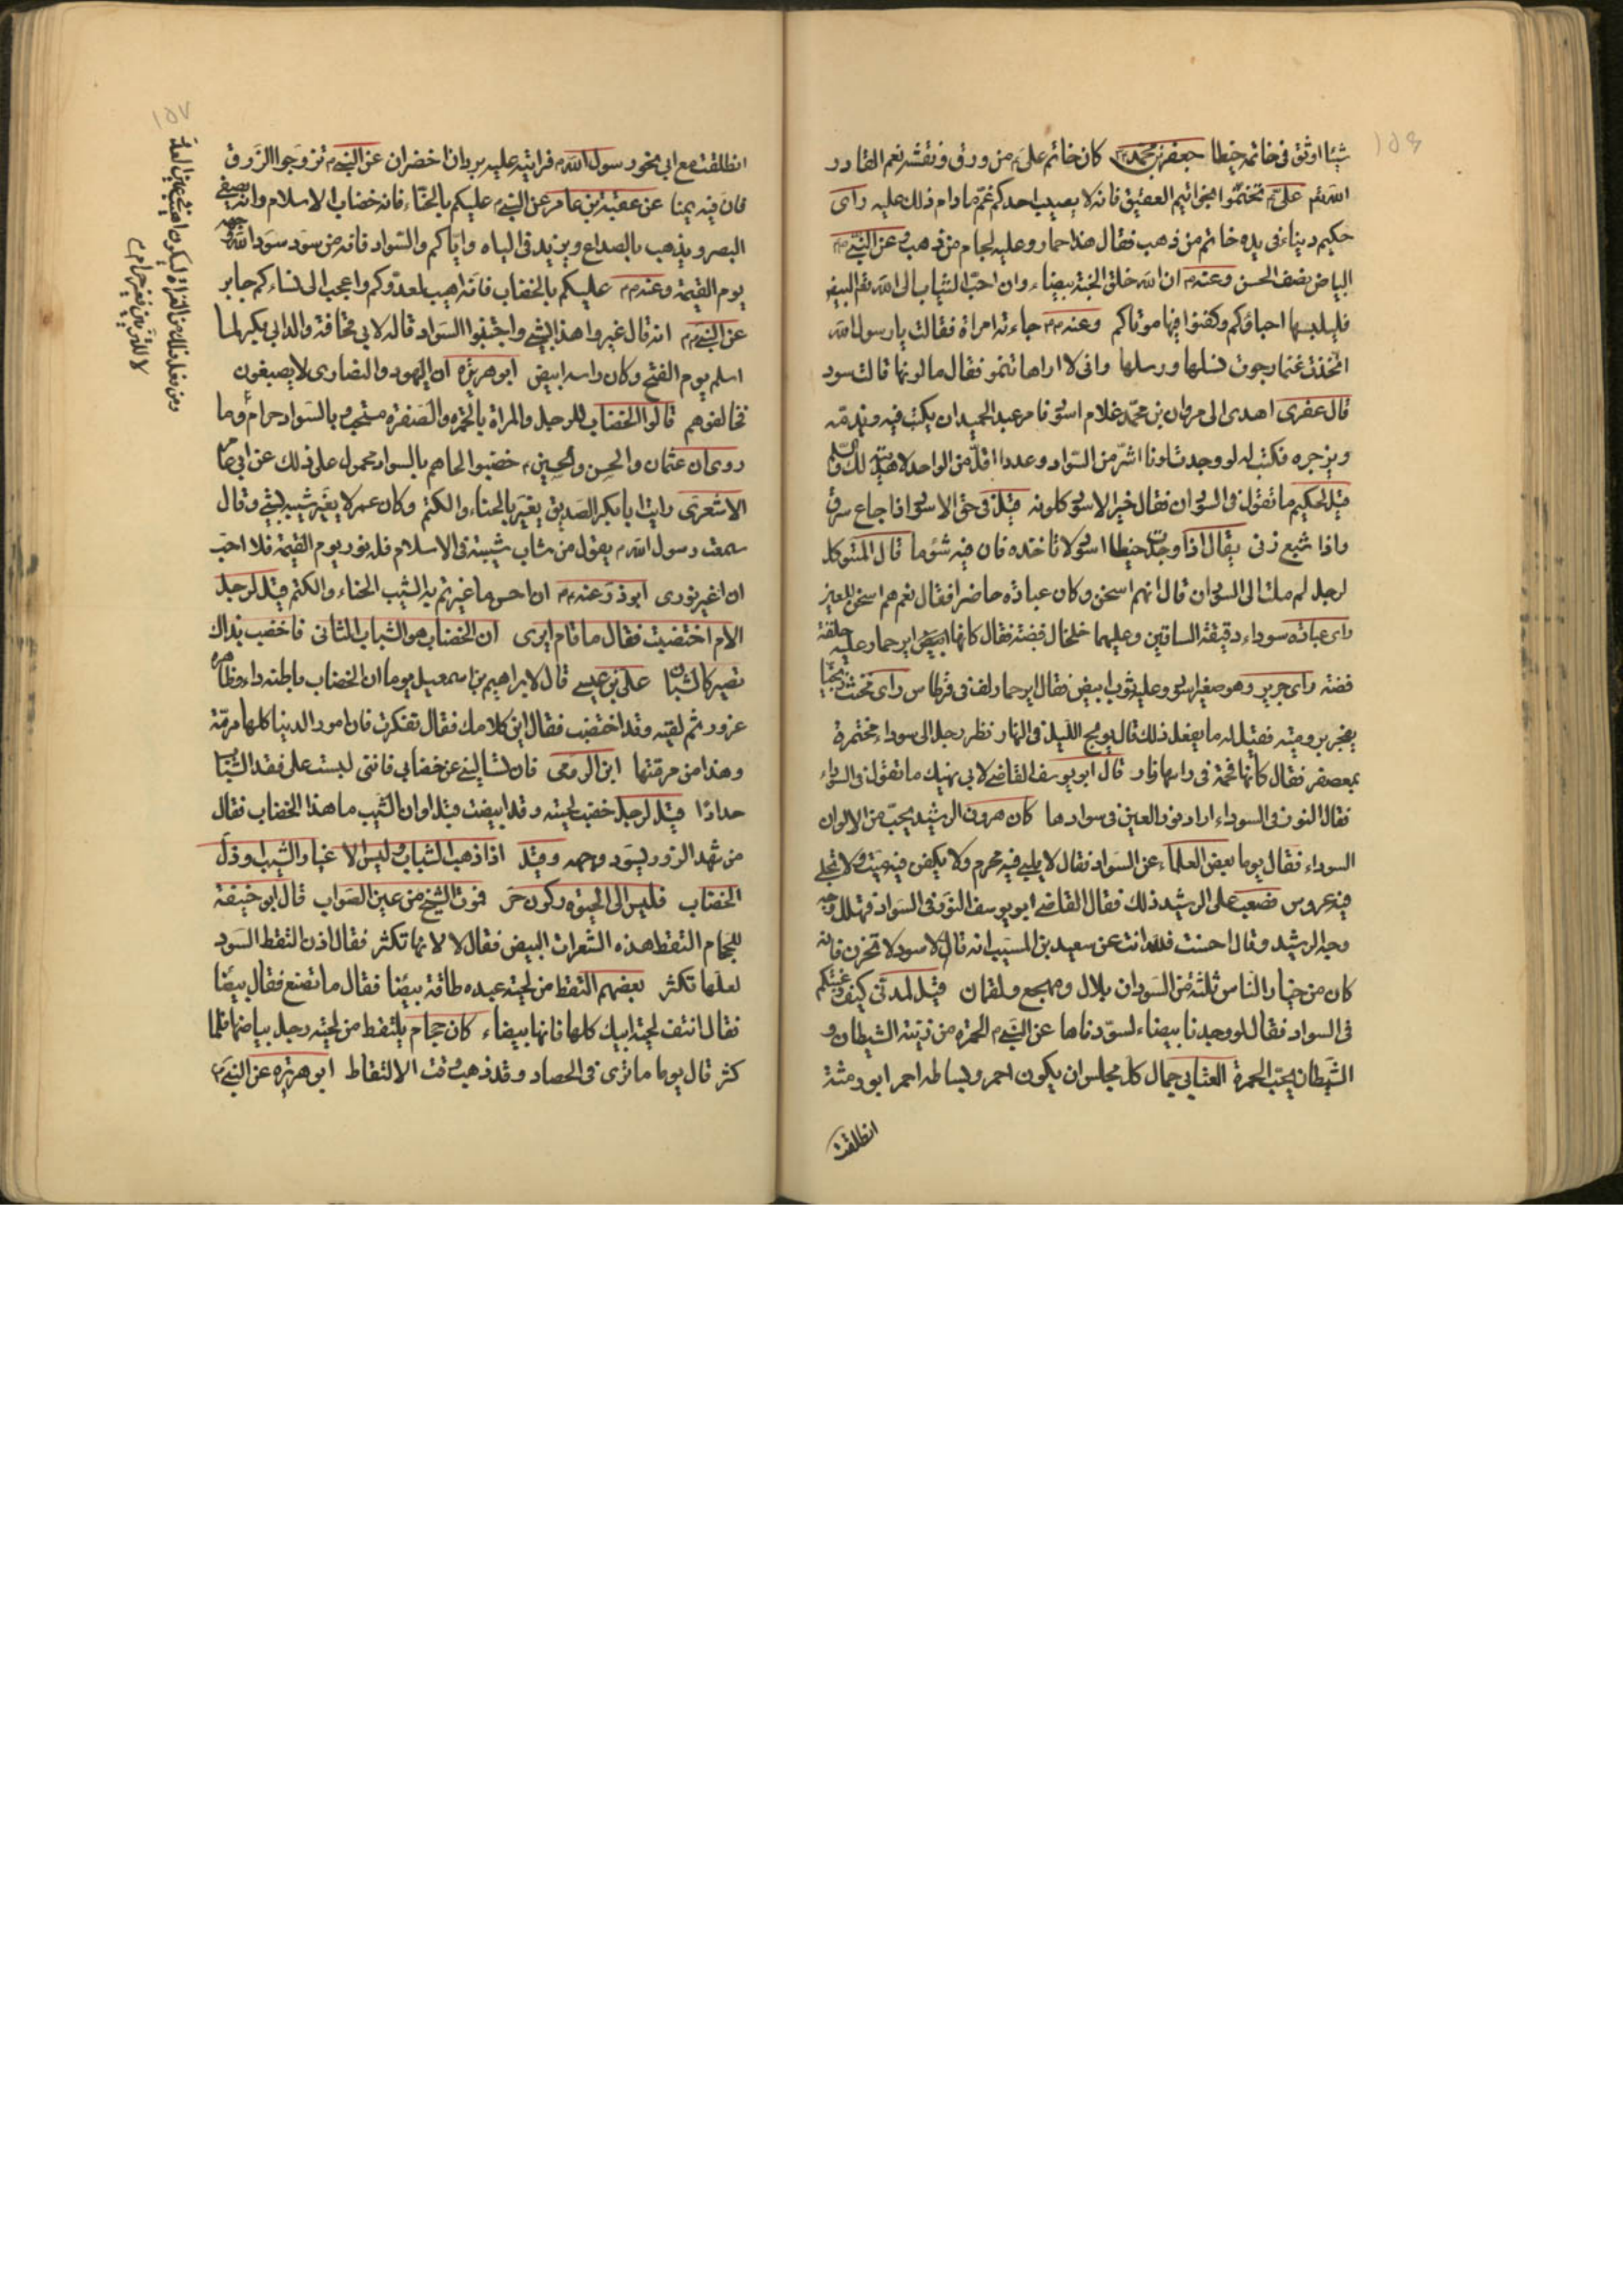 ١٥٦
شيئا اوثق فى خاتمه خيطا جعفر بن محمد كان خاتم على من ورق ونقشه نعم القادر
الله على تختموا بخواتيم العقيق فانه لا يصيب احدكم غم ما دام ذلك عليه راى
حكيم دينار فى يده خاتم من ذهب فقال هذا حمار وعليه لجام من ذهب عن النبى
البياض نصف الحسن وعنه ان الله خلق الجنة بيضاء وان احب الثياب الى الله البيض
فليلبسها احياؤكم وكفنوا فيها موتاكم وعنه جاءته امراة فقالت يا رسول الله
اتخذت غنما رجوت نسلها ورسلها وانى لا اراها تنمو فقال ما لونها قالت سود
قال عفرى اهدى الى مروان بن محمد غلام اسود فامر عبد الحميد ان يكتب فيه ويذمه
ويزجره فكتب له لو وجدت لونا اشر من السواد وعددا اقل من الواحد لاهديته لك والسلم
قيل لحكيم ما تقول فى السودان فقال خير الاسود كلونه قيل فى حق الاسود اذا جاع سرق
واذا شبع زنى يقال اذا وجدت خيطا اسود لا تاخذه فان فيه شؤما قال المتوكل
لرجل لم ملت الى السودان قال انهم اسخن وكان عبادة حاضرا فقال نعم هم اسخن للعين
راى عبادة سوداء دقيقة الساقين وعليهما خلخال فضة فقال كانها اير حمار عليه حلقة
فضة راى جرير وهو صغير اسود وعليه ثوب ابيض فقال اير حمار لف فى قرطاس راى مخنث زنجيا
يفجر برومية فقيل له ما يفعل ذلك قال يولج الليل فى النهار نظر رجل الى سوداء مختمرة
بمعصفر فقال كانها فحمة فى راسها نار قال ابو يوسف القاضى لابى نهيك ما تقول فى السوداء
فقال النور فى السوداء اراد نور العين فى سوادها كان هرون الرشيد يحب من الالوان
السوداء فقال يوما بعض العلماء عن السواد فقال لا يلبى فيه محرم ولا يكفن فيه ميت ولا تجلى
فيه عروس فصعب على الرشيد ذلك فقال القاضى ابو يوسف النور فى السواد فتهلل وجه
وجه الرشيد وقال احسنت فلله انت عن سعيد بن المسيب انه قال لاسود لا تحزن فانه
كان من خيار الناس ثلثة من السودان بلال ومهجع ولقمان قيل لمدنى كيف رغبتكم
فى السواد فقال لو وجدنا بيضاء لسودناها عن النبى الحمرة من زينة الشيطان و
الشيطان يحب الحمرة العتابى جمال كل مجلس ان يكون احمر وبساطه احمر ابو رمثة
انطلقت
١٥٧
انطلقت مع ابى نحو رسول الله فرايته عليه بردان اخضران عن النبى تزوجوا الزرق
فان فيه يمنا عن عقبة بن عامر عن النبى عليكم بالحناء فانه خضاب الاسلام وانه يصفى
البصر ويذهب بالصداع ويزيد فى الباه واياكم والسواد فانه من سود سود الله وجهه
يوم القيمة وعنه عليكم بالخضاب فانه اهيب لعدوكم واعجب الى نسائكم جابر
عن النبى انه قال غيروا هذا الشيب واجتنبوا السواد قاله لابى قحافة والد ابى بكر لما
اسلم يوم الفتح وكان راسه ابيض ابو هريرة ان اليهود والنصارى لا يصبغون
فخالفوهم قالوا الخضاب للرجل والمراة بالحمرة والصفرة مستحب بالسواد حرام وما
روى ان عثمان والحسن والحسين خضبوا لحاهم بالسواد محمول على ذلك عن ابى عامر
الاشعرى رايت ابا بكر الصديق يغير بالحناء والكتم وكان عمر لا يغير شيبه بشئ وقال
سمعت رسول الله يقول من شاب شيبة فى الاسلام فله نور يوم القيمة فلا احب
ان اغير نورى ابو ذر عنه ان احسن ما غيرتم به الشيب الحناء والكتم قيل لرجل
الام اختضبت فقال ما قام ايرى ان الخضاب هو الشباب الثانى فاخضب بذاك
تصير كالشبان على بن عيسى قال لابراهيم بن اسمعيل يوما ان الخضاب باطنه داء وظاهره
غرور ثم لقيته وقد اختضب فقال اين كلامك فقال تفكرت فان امور الدنيا كلها مرمة
وهذا من مرمتها ابن الرومى فان تسالينى عن خضابى فاننى لبست على فقد الشباب
حدادا قيل لرجل خضب لحيته وقد ابيضت قبل اوان الشيب ما هذا الخضاب فقال
من شهد الزور يسود وجهه وقيل اذا ذهب الشباب وليس الا غبار الشيب وذل
الخضاب فليس الى الحيوة ركون حر فموت الشيخ من عين الصواب قال ابو حنيفة
للحجام التقط هذه الشعرات البيض فقال لا لانها تكثر فقال اذن التقط السود
لعلها تكثر بعضهم التقط من لحية عبده طاقة بيضا فقال ما تصنع فقال بيضا
فقال انتف لحية ابيك كلها فانها بيضاء كان حجام يلتقط من لحية رجل بياضها فلما
كثر قال يوما ما ترى فى الحصاد وقد ذهب وقت الالتقاط ابو هريرة عن النبى